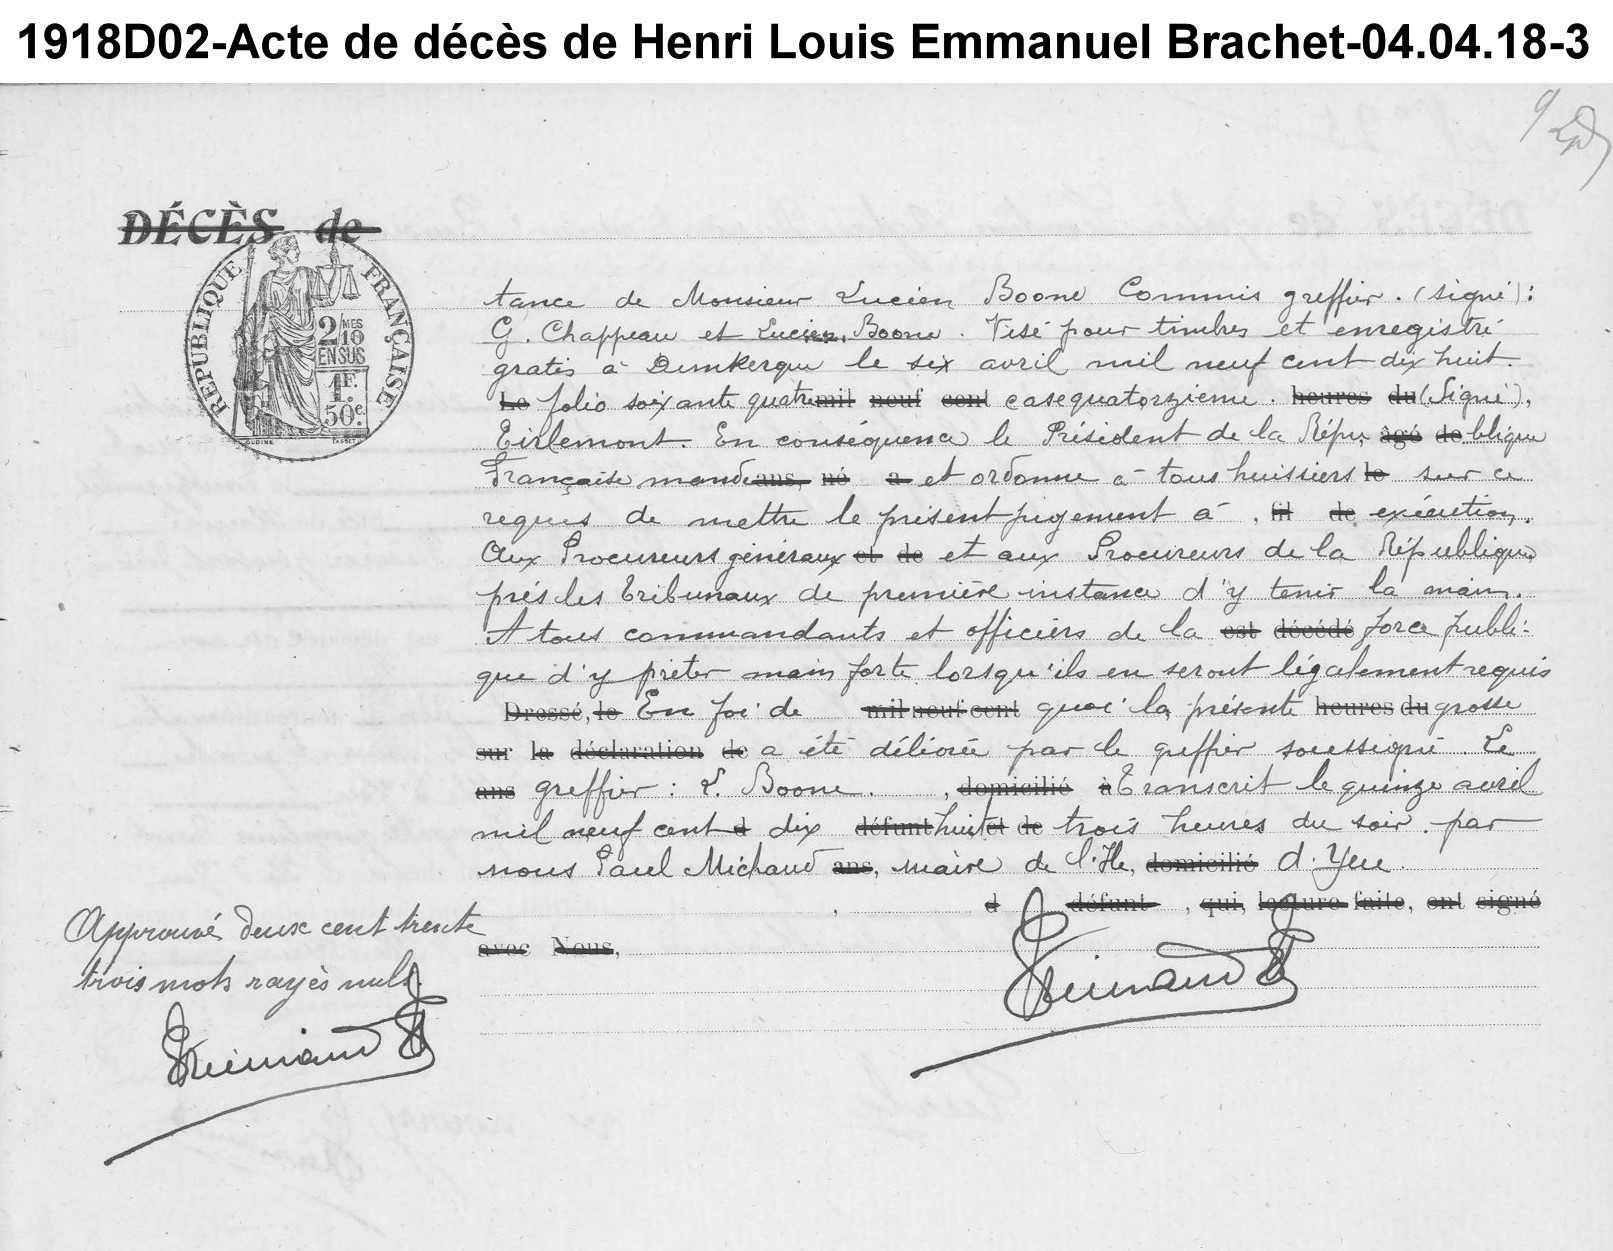 1918D02-Acte de décès de Henri Louis Emmanuel Brachet-04.04.18-3
9
DÉCÈS de
RÉPUBLIQUE FRANÇAISE
2/MES
10
EN SUS
1F.
50c.
OUDINÉ
TASSET
tance de Monsieur Lucien Boone Commis greffier. (signé):
G. Chappeau et Lucien Boone. Visé pour timbres et enregistré
gratis à Dunkerque le six avril mil neuf cent dix huit.
Le folio soixante quatre mil neuf cent case quatorzième. heures du (Signé),
Tirlemont. En conséquence le Président de la Répu- âgé de blique
Française mande ans, né a et ordonne à tous huissiers le sur ce
requis de mettre le présent jugement à , fil de exécution.
Aux Procureurs généraux et de et aux Procureurs de la République
près les tribunaux de première instance d'y tenir la main.
A tous commandants et officiers de la est décédé force publi-
que d'y prêter main forte lorsqu'ils en seront légalement requis
Dressé, le En foi de mil neuf cent quoi la présente heures du grosse
sur la déclaration de a été délivrée par le greffier soussigné. Le
ans greffier : L. Boone. , domicilié à Transcrit le quinze avril
mil neuf cent d dix défunt huit et de trois heures du soir. par
nous Paul Michaud ans, maire de l'Ile, domicilié d'Yeu.
, d défunt , qui, lecture faite, ont signé
avec Nous,
Approuvé deux cent trente
trois mots rayés nuls.